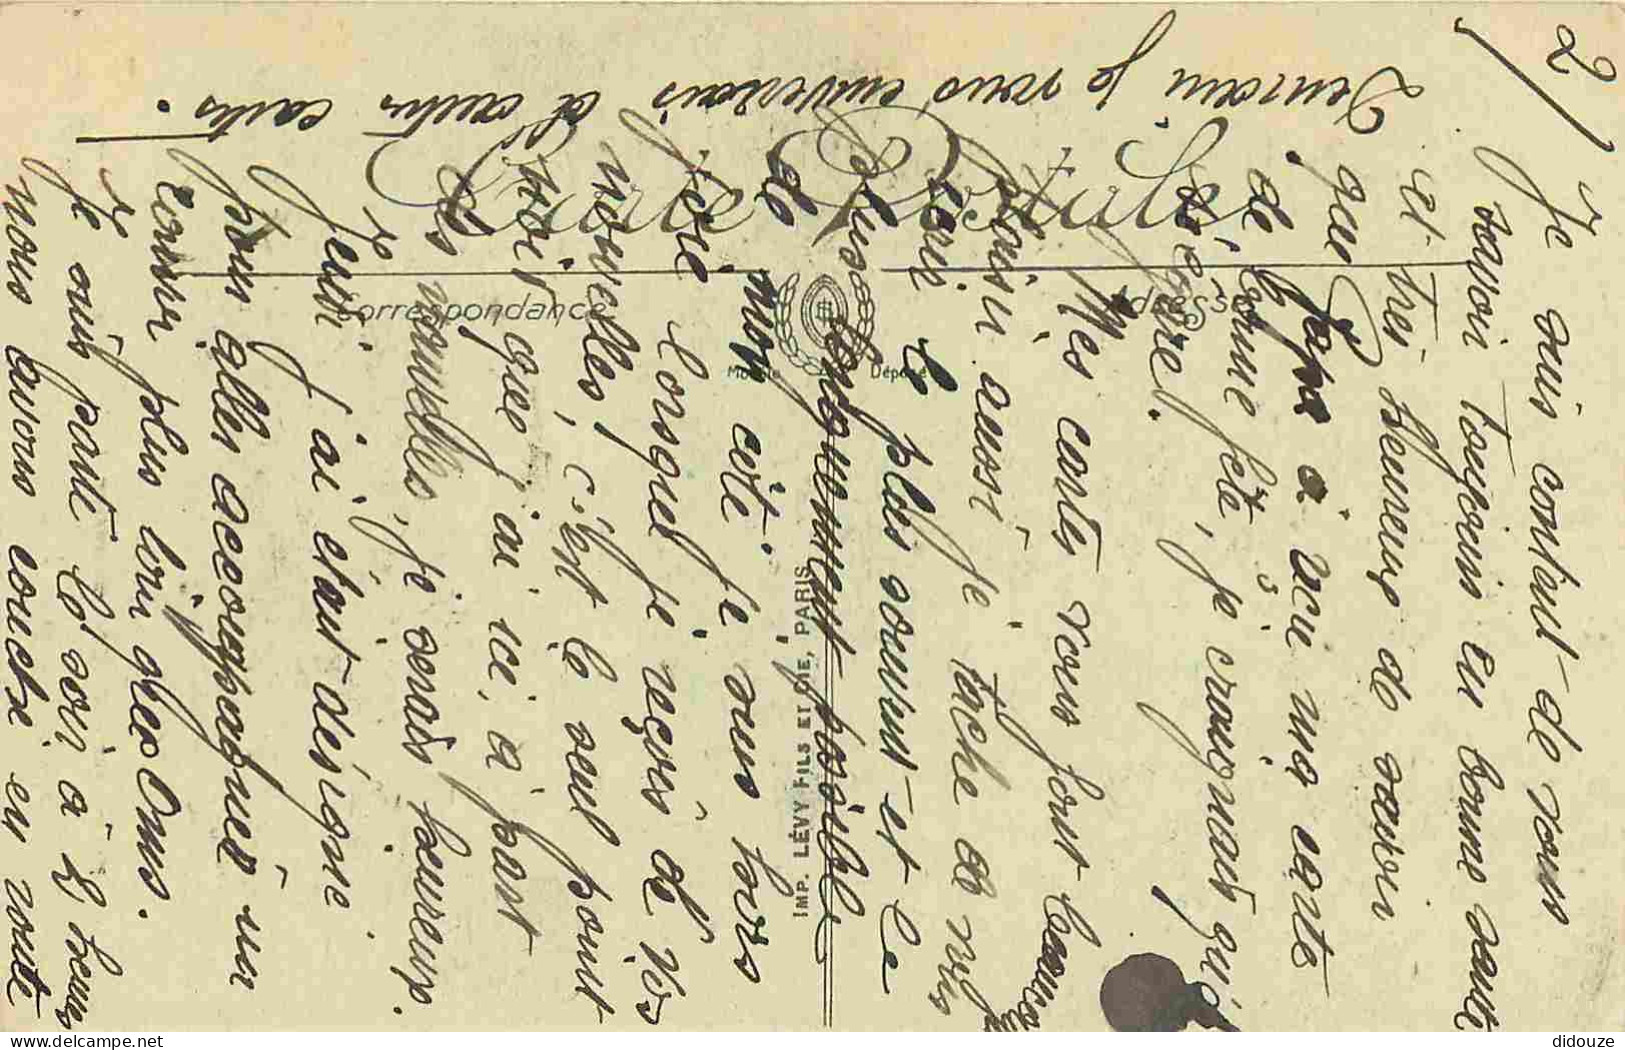 2
Je suis content de vous
savoir toujours en bonne santé
et très heureux de savoir
que Papa à reçu ma carte
de bonne fête, je craignais qu'il
s'égare.
Mes cartes vous font beaucoup
plaisir aussi je tâche de vous
écrire le plus souvent et le
plus longuement possible
de mon côté je suis tous
fier lorsque je reçois de vos
nouvelles, c'est le seul point
que j'ai ici, à part
ces nouvelles, je serais heureux.
Jeudi j'ai était désigné
pour aller accompagner un
convoi plus loin que Omus.
Je suis parti le soir à 4 heures
nous avons couché en route
Demain je vous enverrais d'autres cartes.
Carte Postale
Correspondance
Adresse
Modèle Déposé
IMP. LÉVY FILS ET CIE, PARIS
delcampe.net
didouze